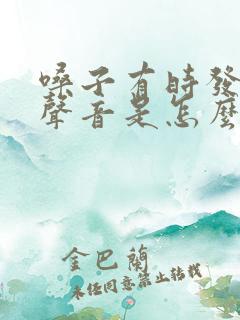 嗓子有時發
聲音是怎麼
金巴蘭
未經同意禁止轉載